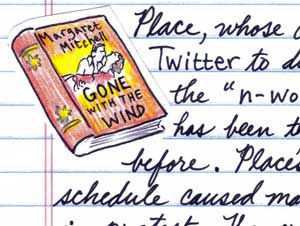 Margaret
Mitchell
GONE
WITH THE
WIND
Place, whose
Twitter to
the "n-wo
has been t
before. Place's
schedule caused ma